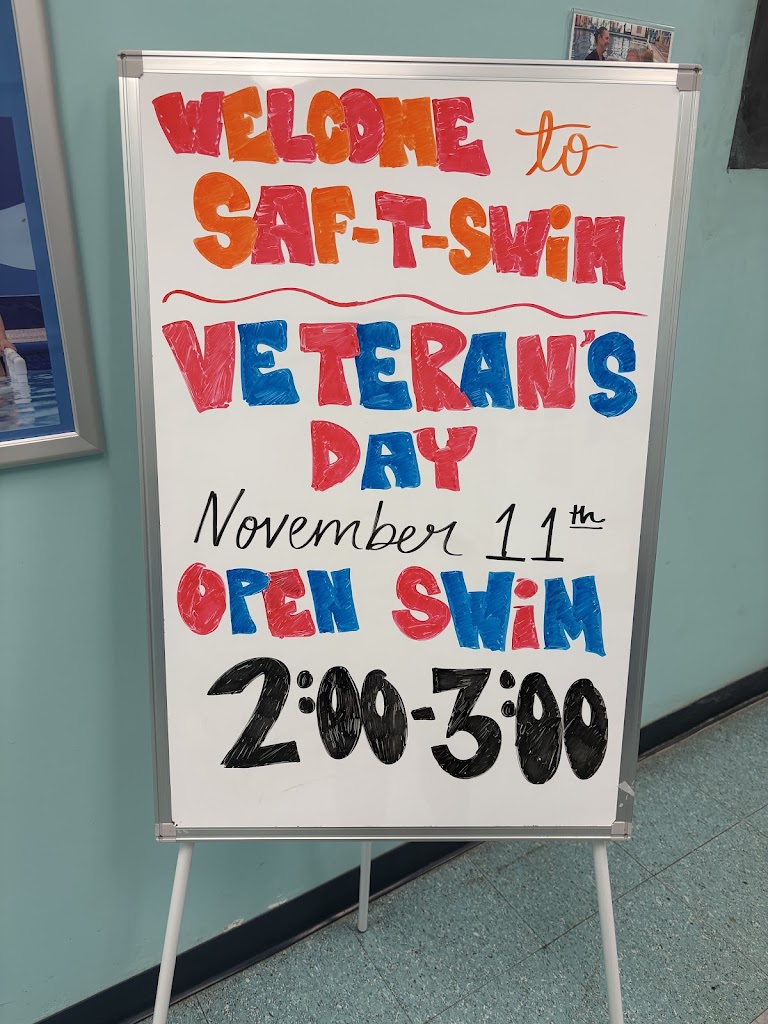 WELCOME to
SAF-T-SWiM
VETERAN'S
DAY
November 11th
OPEN SWiM
2:00-3:00